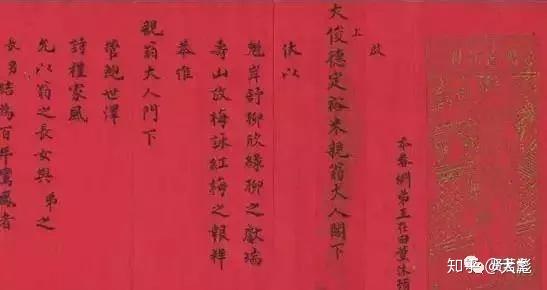 忝眷婣弟王在田薰沐頓
啟
上
大俊德定裕朱親翁大人閣下
伏以
魁岸詩柳欣綠柳之獻瑞
壽山放梅詠紅梅之報祥
恭惟
親翁大人門下
管鮑世澤
詩禮家風
允以翁之長女與 弟之
長男結為百年鸞鳳者
知乎